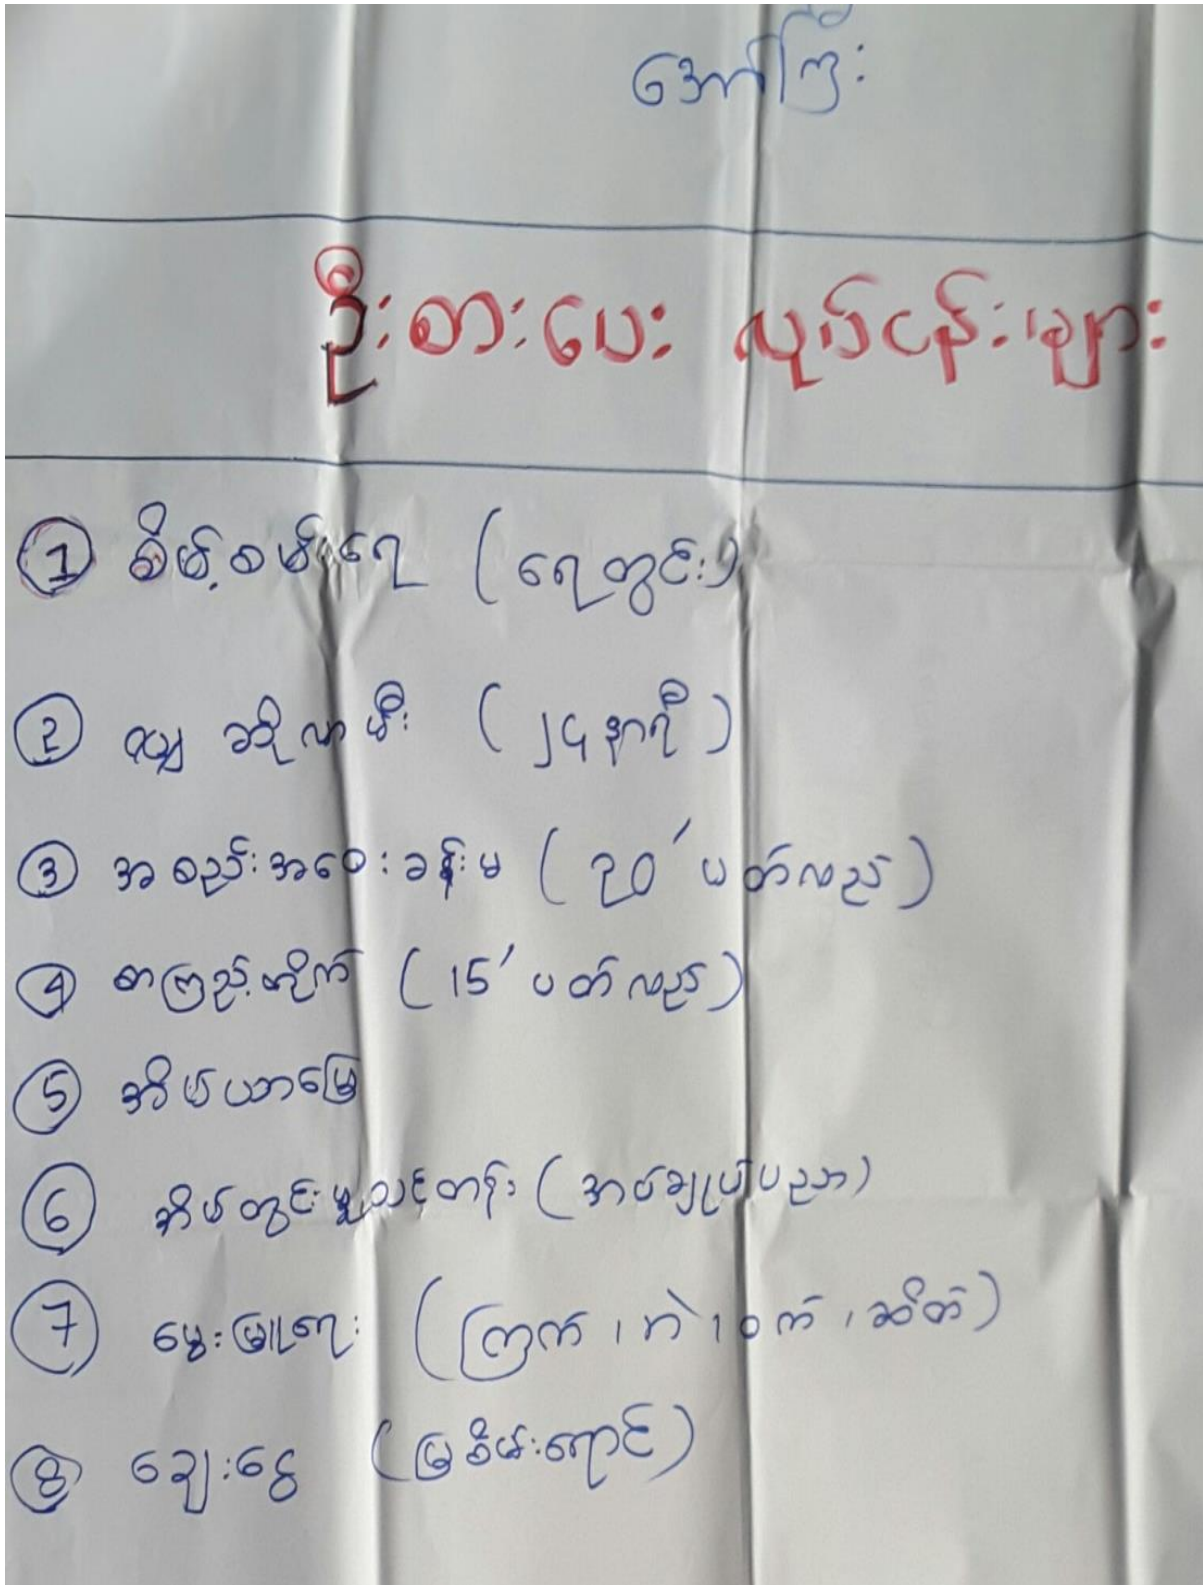 အော်ကြီး
ဦးစားပေး လုပ်ငန်းများ
① စိမ့်စမ်းရေ (ရေတွင်း)
② ဆိုလာမီး (၂၄နာရီ)
③ အစည်းအဝေးခန်းမ (20' ပတ်လည်)
④ စာကြည့်တိုက် (15' ပတ်လည်)
⑤ အိမ်ယာမြေ
⑥ အိမ်တွင်းမှုသင်တန်း (အပ်ချုပ်ပညာ)
⑦ မွေးမြူရေး (ကြက်၊ဘဲ၊ဝက်၊ဆိတ်)
⑧ ချေးငွေ (မြစိမ်းရောင်)